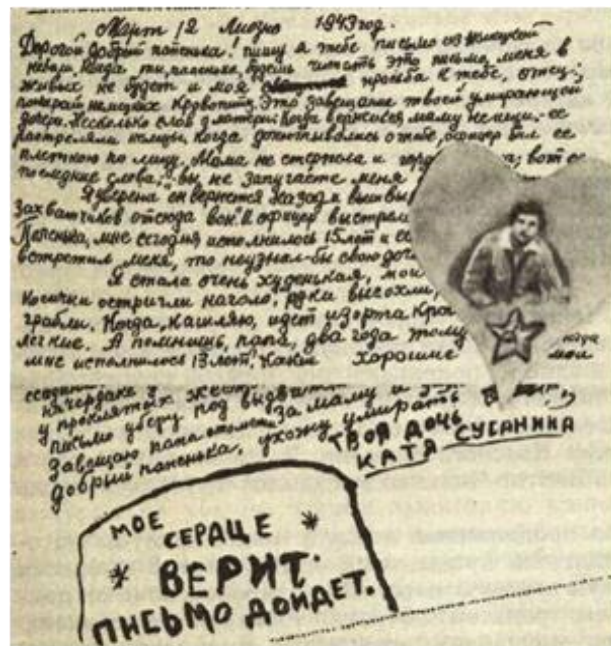 Март, 12 Лиозно 1943 год.
Дорогой добрый папенька! пишу я тебе письмо из немецкой
неволи. Когда ты, папенька, будешь читать это письмо, меня в
живых не будет и моя просьба к тебе, отец:
покарай немецких кровопийц. Это завещание твоей умирающей
дочери. Несколько слов о матери. Когда вернешься маму не ищи. ее
расстреляли немцы. Когда допытывались о тебе, офицер бил ее
плеткою по лицу. Мама не стерпела и гордо вот ее
последние слова: вы не запугаете меня
Я уверена он вернется назад и
захватчиков отсюда вон. И офицер
Папенька, мне сегодня исполнилось 15 лет и
встретил меня, то неузнал-бы свою
Я стала очень худенькая, мои
косички остригли наголо, руки высохли,
грабли. Когда, кашляю, идет изорта
легкие. А помнишь, папа, два года тому когда
мне исполнилось 13 лет? Какие Хорошие мои
на чердаке
у проклятых
письмо уберу под
Завещаю папа отомсти за маму и
добрый папенька, ухожу умирать
ТВОЯ ДОЧЬ
КАТЯ СУСАНИНА
МОЕ
СЕРДЦЕ
ВЕРИТ:
ПИСЬМО ДОЙДЕТ.